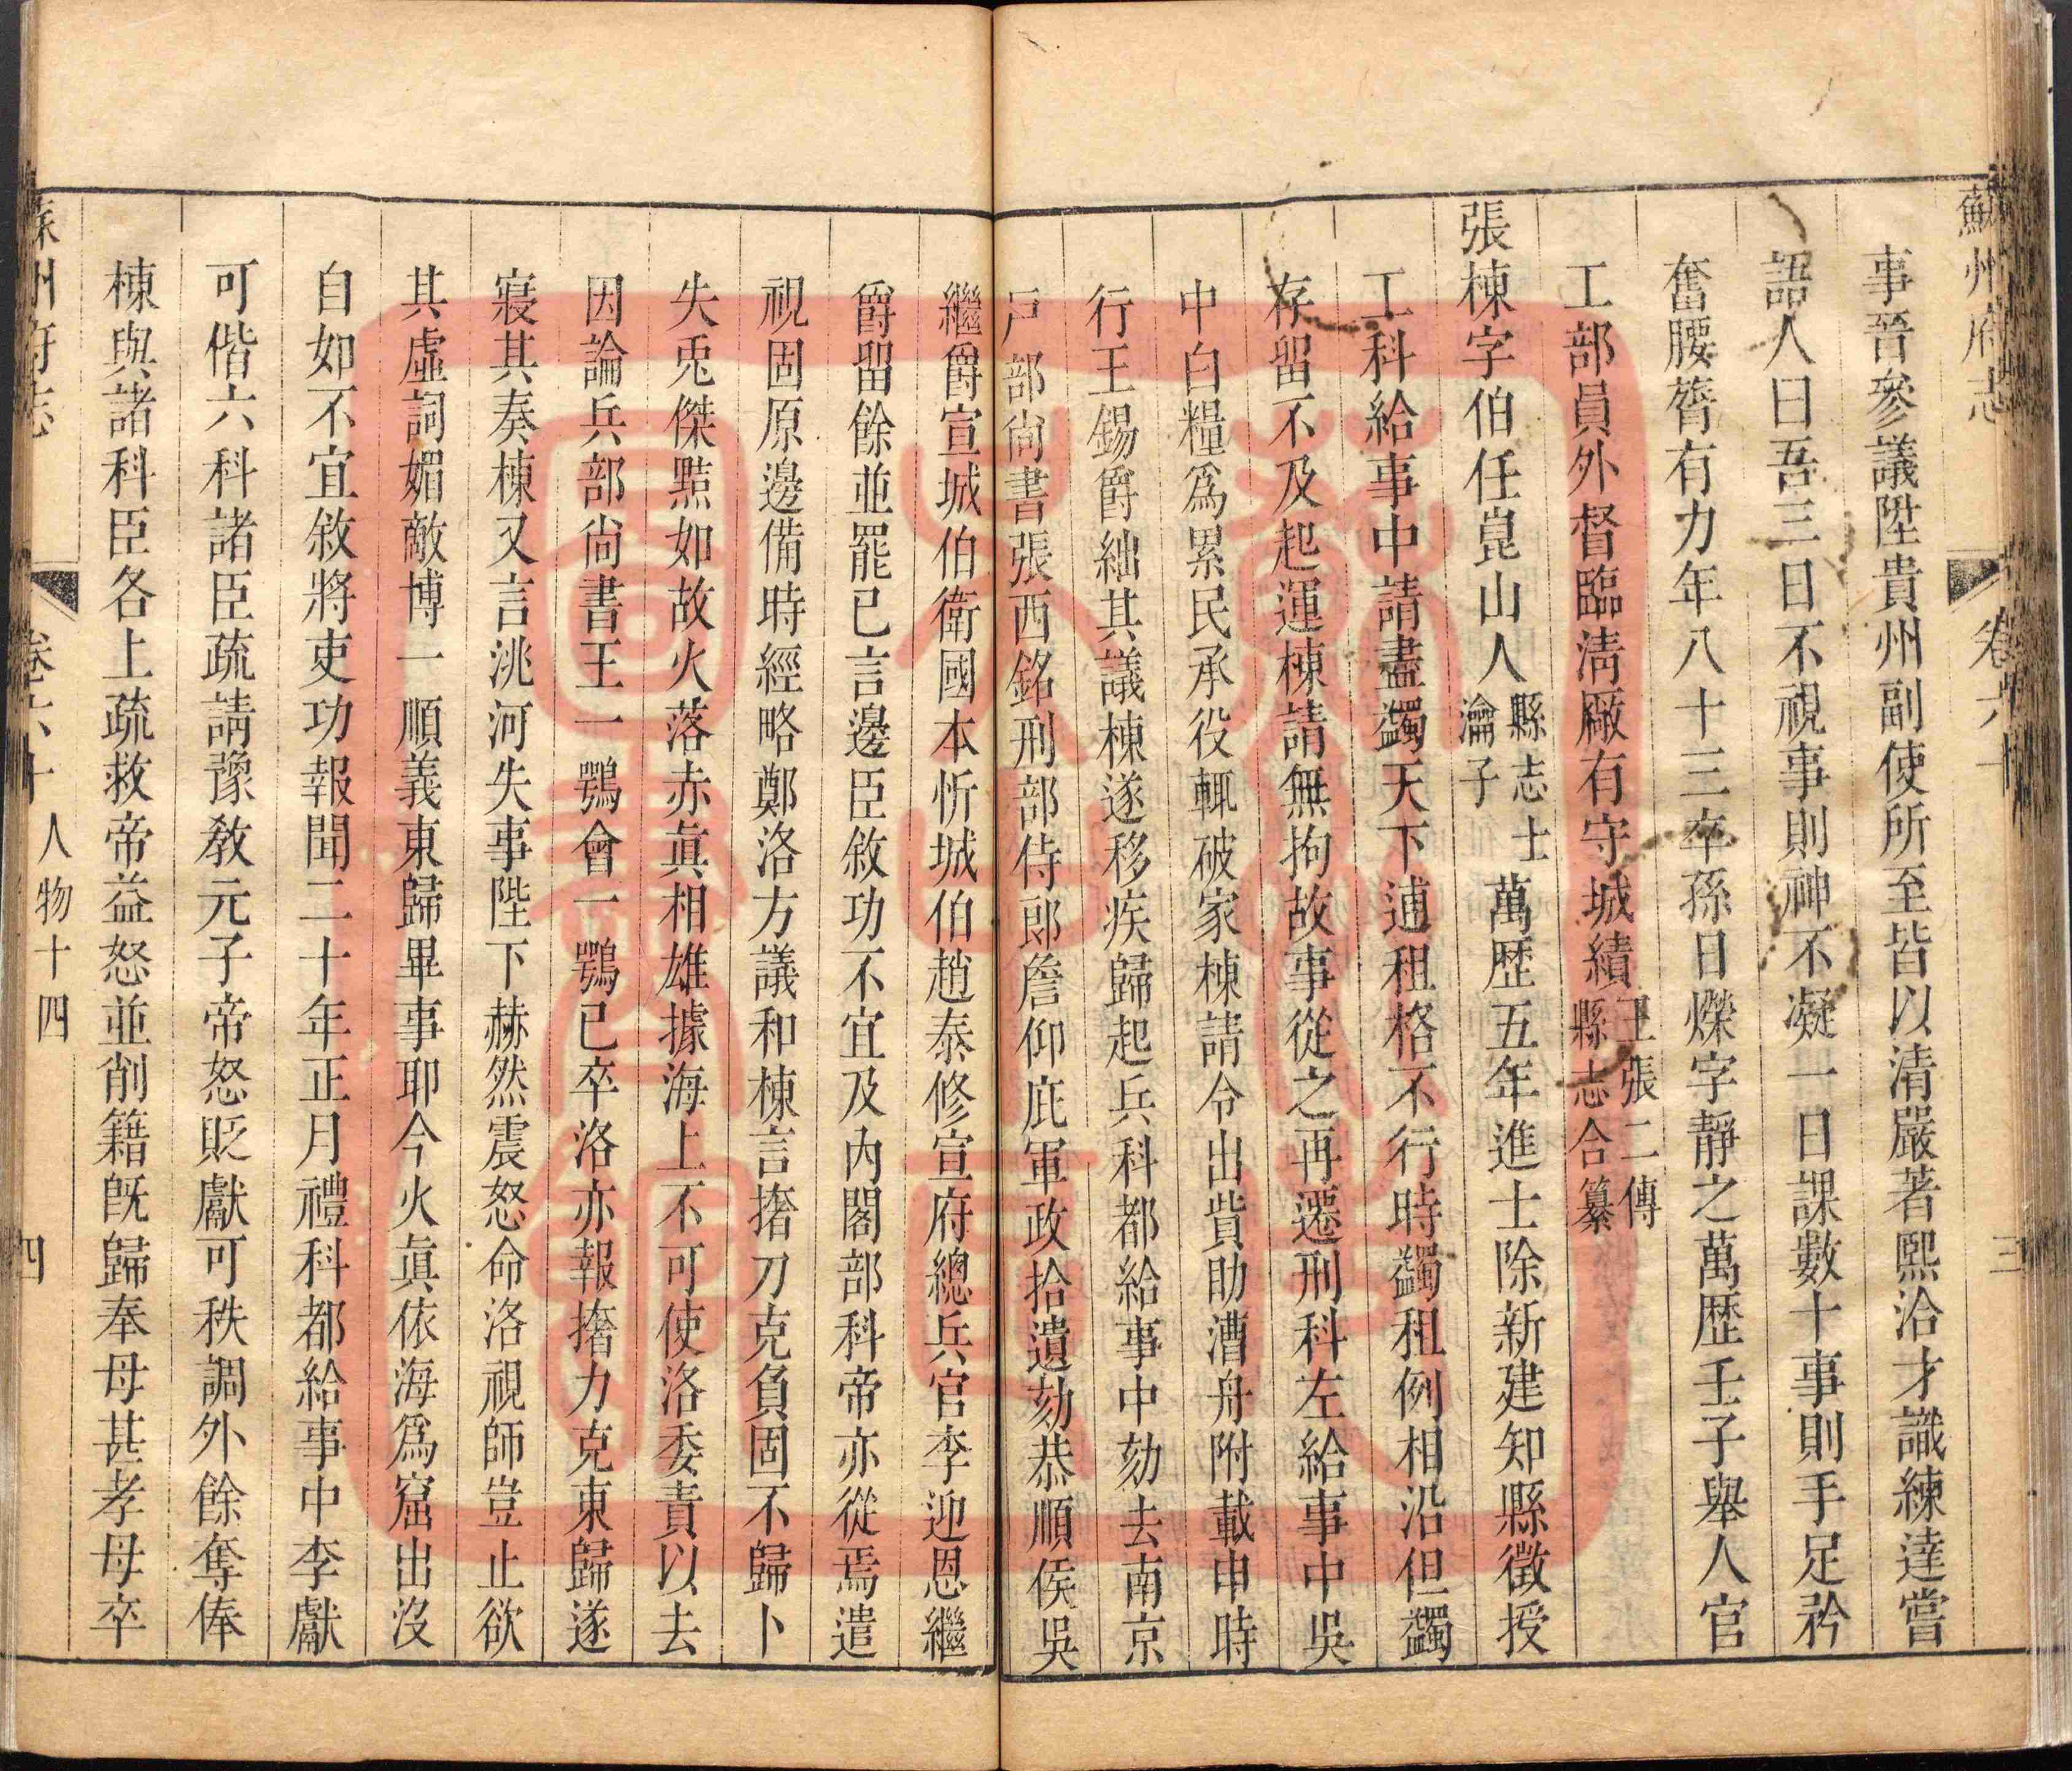 蘇州府志 卷六十 三
事晉參議陞貴州副使所至皆以清嚴著熙洽才識練達嘗
語人曰吾三日不視事則神不凝一日課數十事則手足矜
奮腰膂有力年八十三卒孫日爍字靜之萬歷壬子舉人官
工部員外督臨淸廠有守城績王張二傳縣志合纂
張棟字伯任崑山人縣志士瀹子萬歷五年進士除新建知縣徵授
工科給事中請盡蠲天下逋租格不行時蠲租例相沿但蠲
存留不及起運棟請無拘故事從之再遷刑科左給事中吳
中白糧爲累民承役輒破家棟請令出貲助漕舟附載申時
行王錫爵絀其議棟遂移疾歸起兵科都給事中劾去南京
戸部尙書張西銘刑部侍郎詹仰庇軍政拾遺劾恭順侯吳
繼爵宣城伯衛國本忻城伯趙泰修宣府總兵官李迎恩繼
爵留餘並罷已言邊臣敘功不宜及內閣部科帝亦從焉遣
視固原邊備時經略鄭洛方議和棟言撦力克負固不歸卜
失兎傑黠如故火落赤眞相雄據海上不可使洛委責以去
因論兵部尙書王一鶚會一鶚已卒洛亦報撦力克東歸遂
寢其奏棟又言洮河失事陛下赫然震怒命洛視師豈止欲
其虛詞媚敵博一順義東歸畢事耶今火眞依海爲窟出沒
自如不宜敘將吏功報聞二十年正月禮科都給事中李獻
可偕六科諸臣疏請豫敎元子帝怒貶獻可秩調外餘奪俸
棟與諸科臣各上疏救帝益怒並削籍旣歸奉母甚孝母卒
蘇州府志 卷六十 人物十四 四